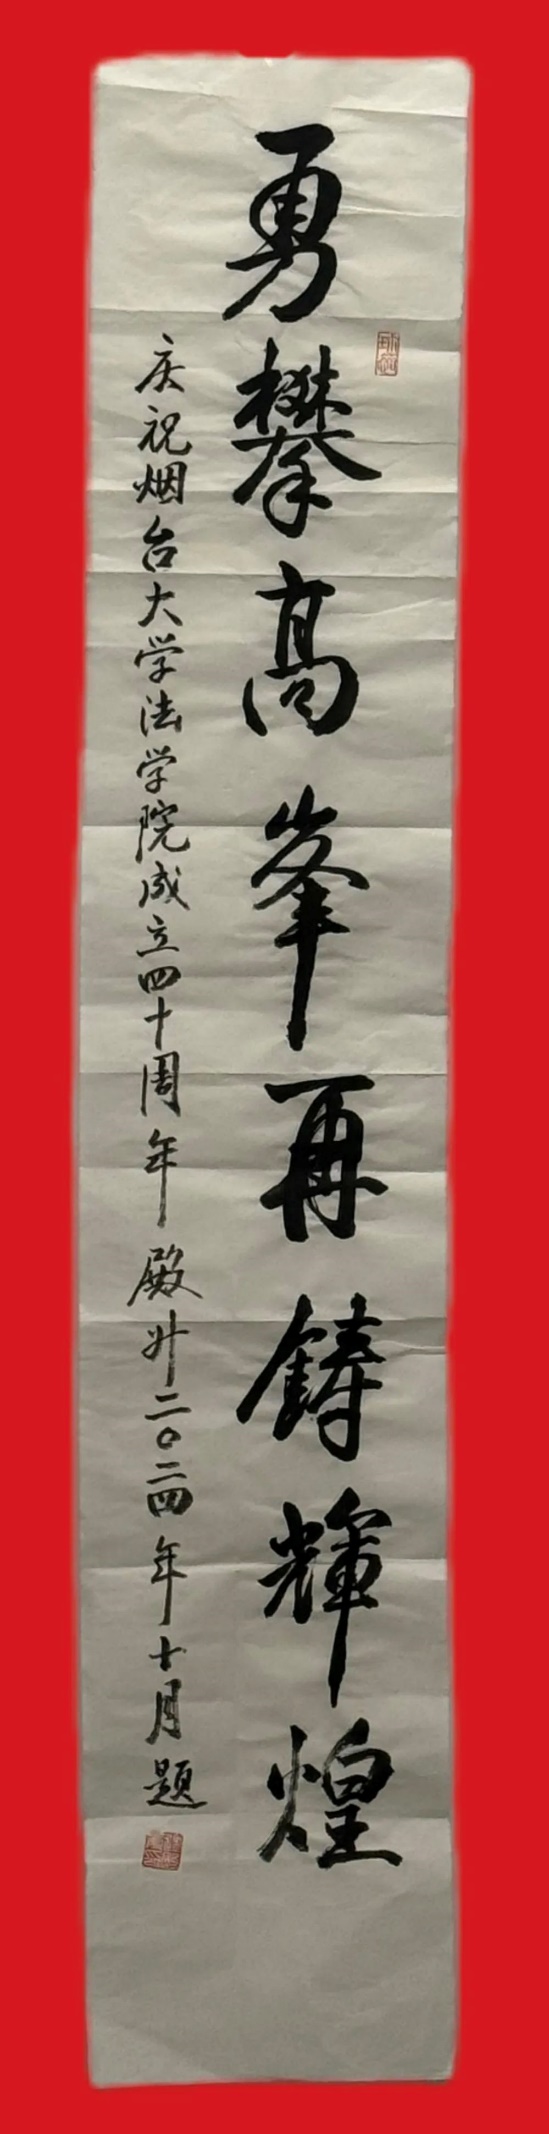 勇攀高峯再鑄輝煌
庆祝烟台大学法学院成立四十周年 殿升二〇二四年十月题